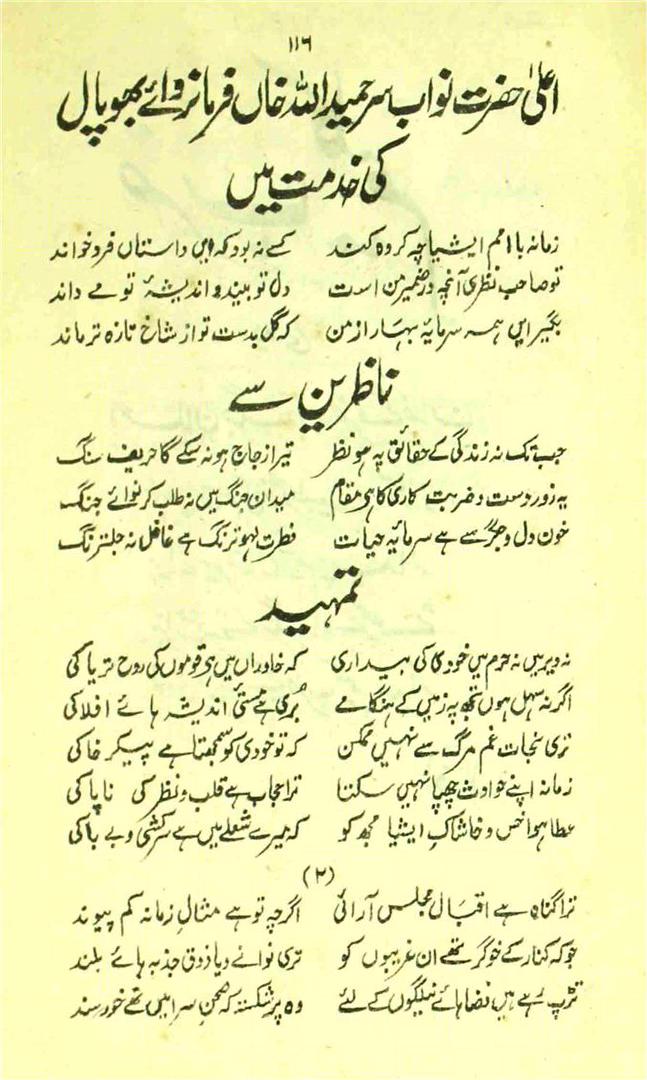 ۱۱۶
اعلیٰ حضرت نواب سر حمید اللہ خاں فرمانروائے بھوپال
کی خدمت میں
زمانہ با امم ایشیا چہ کرد و کند کسے نہ بود کہ ایں داستاں فرو خواند
تو صاحب نظری آنچہ در ضمیر من است دل تو بیند و اندیشۂ تو مے داند
بگیر ایں ہمہ سرمایۂ بہار از من کہ گل بدست تو از شاخ تازہ تر ماند
ناظرین سے
جب تک نہ زندگی کے حقائق پہ ہو نظر تیرا زجاج ہو نہ سکے گا حریف سنگ
یہ زور دست و ضربت کاری کا ہی مقام میدان جنگ میں نہ طلب کر نوائے چنگ
خون دل و جگر سے ہے سرمایۂ حیات فطرت لہو ترنگ ہے غافل نہ جلترنگ
تمہید
نہ دیر میں نہ حرم میں خودی کی بیداری کہ خاوراں میں ہی قوموں کی روح تریاکی
اگر نہ سہل ہوں تجھ پہ زمیں کے ہنگامے بُری ہے مستیٔ اندیشہ ہائے افلاکی
تری نجات غم مرگ سے نہیں ممکن کہ تو خودی کو سمجھتا ہے پیکر خاکی
زمانہ اپنے حوادث چھپا نہیں سکتا ترا حجاب ہے قلب و نظر کی ناپاکی
عطا ہوا خس و خاشاکِ ایشیا مجھ کو کہ میرے شعلے میں ہے سرکشی و بے باکی
(۲)
ترا گناہ ہے اقبال مجلس آرائی اگرچہ تو ہے مثال زمانہ کم پیوند
جو کہ کنار کے خوگر تھے ان غریبوں کو تری نوا نے دیا ذوق جذبہ ہائے بلند
تڑپ رہے ہیں فضا ہائے نیلگوں کے لئے وہ پر شکستہ کہ صحنِ سرا میں تھے خورسند